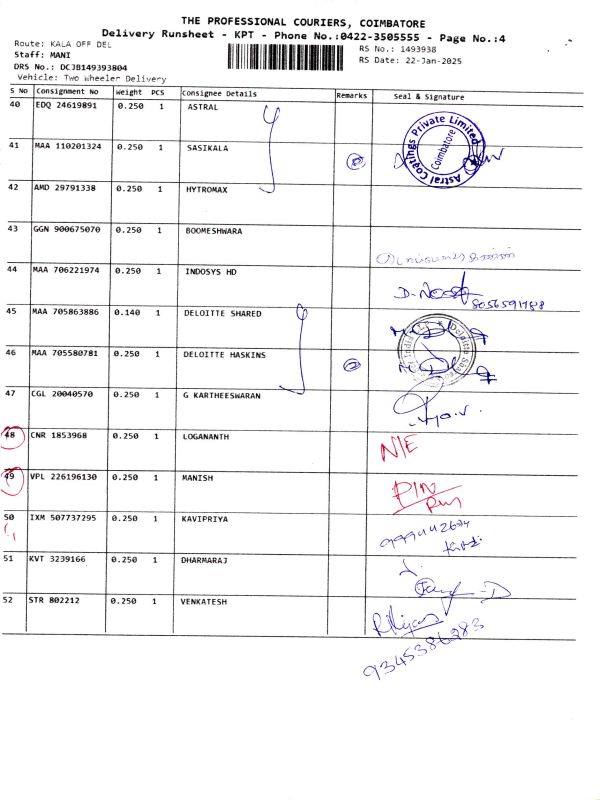 THE PROFESSIONAL COURIERS, COIMBATORE
Delivery Runsheet - KPT - Phone No.:0422-3505555 - Page No.:4
Route: KALA OFF DEL
RS No.: 1493938
Staff: MANI
RS Date: 22-Jan-2025
DRS No.: DCJB149393804
Vehicle: Two Wheeler Delivery
S No Consignment No Weight PCS Consignee Details Remarks Seal & Signature
40 EDQ 24619891 0.250 1 ASTRAL
Astral Coatings Private Limited
Coimbatore
41 MAA 110201324 0.250 1 SASIKALA
42 AMD 29791338 0.250 1 HYTROMAX
43 GGN 900675070 0.250 1 BOOMESHWARA
44 MAA 706221974 0.250 1 INDOSYS HD
8056591788
45 MAA 705863886 0.140 1 DELOITTE SHARED
46 MAA 705580781 0.250 1 DELOITTE HASKINS
47 CGL 20040570 0.250 1 G KARTHEESWARAN
48 CNR 1853968 0.250 1 LOGANANTH N/E
49 VPL 226196130 0.250 1 MANISH
50 IXM 507737295 0.250 1 KAVIPRIYA
51 KVT 3239166 0.250 1 DHARMARAJ
52 STR 802212 0.250 1 VENKATESH